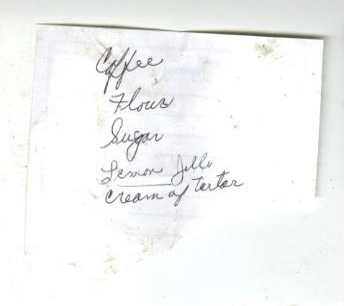 Coffee
Flour
Sugar
Lemon Jello
cream of tartar